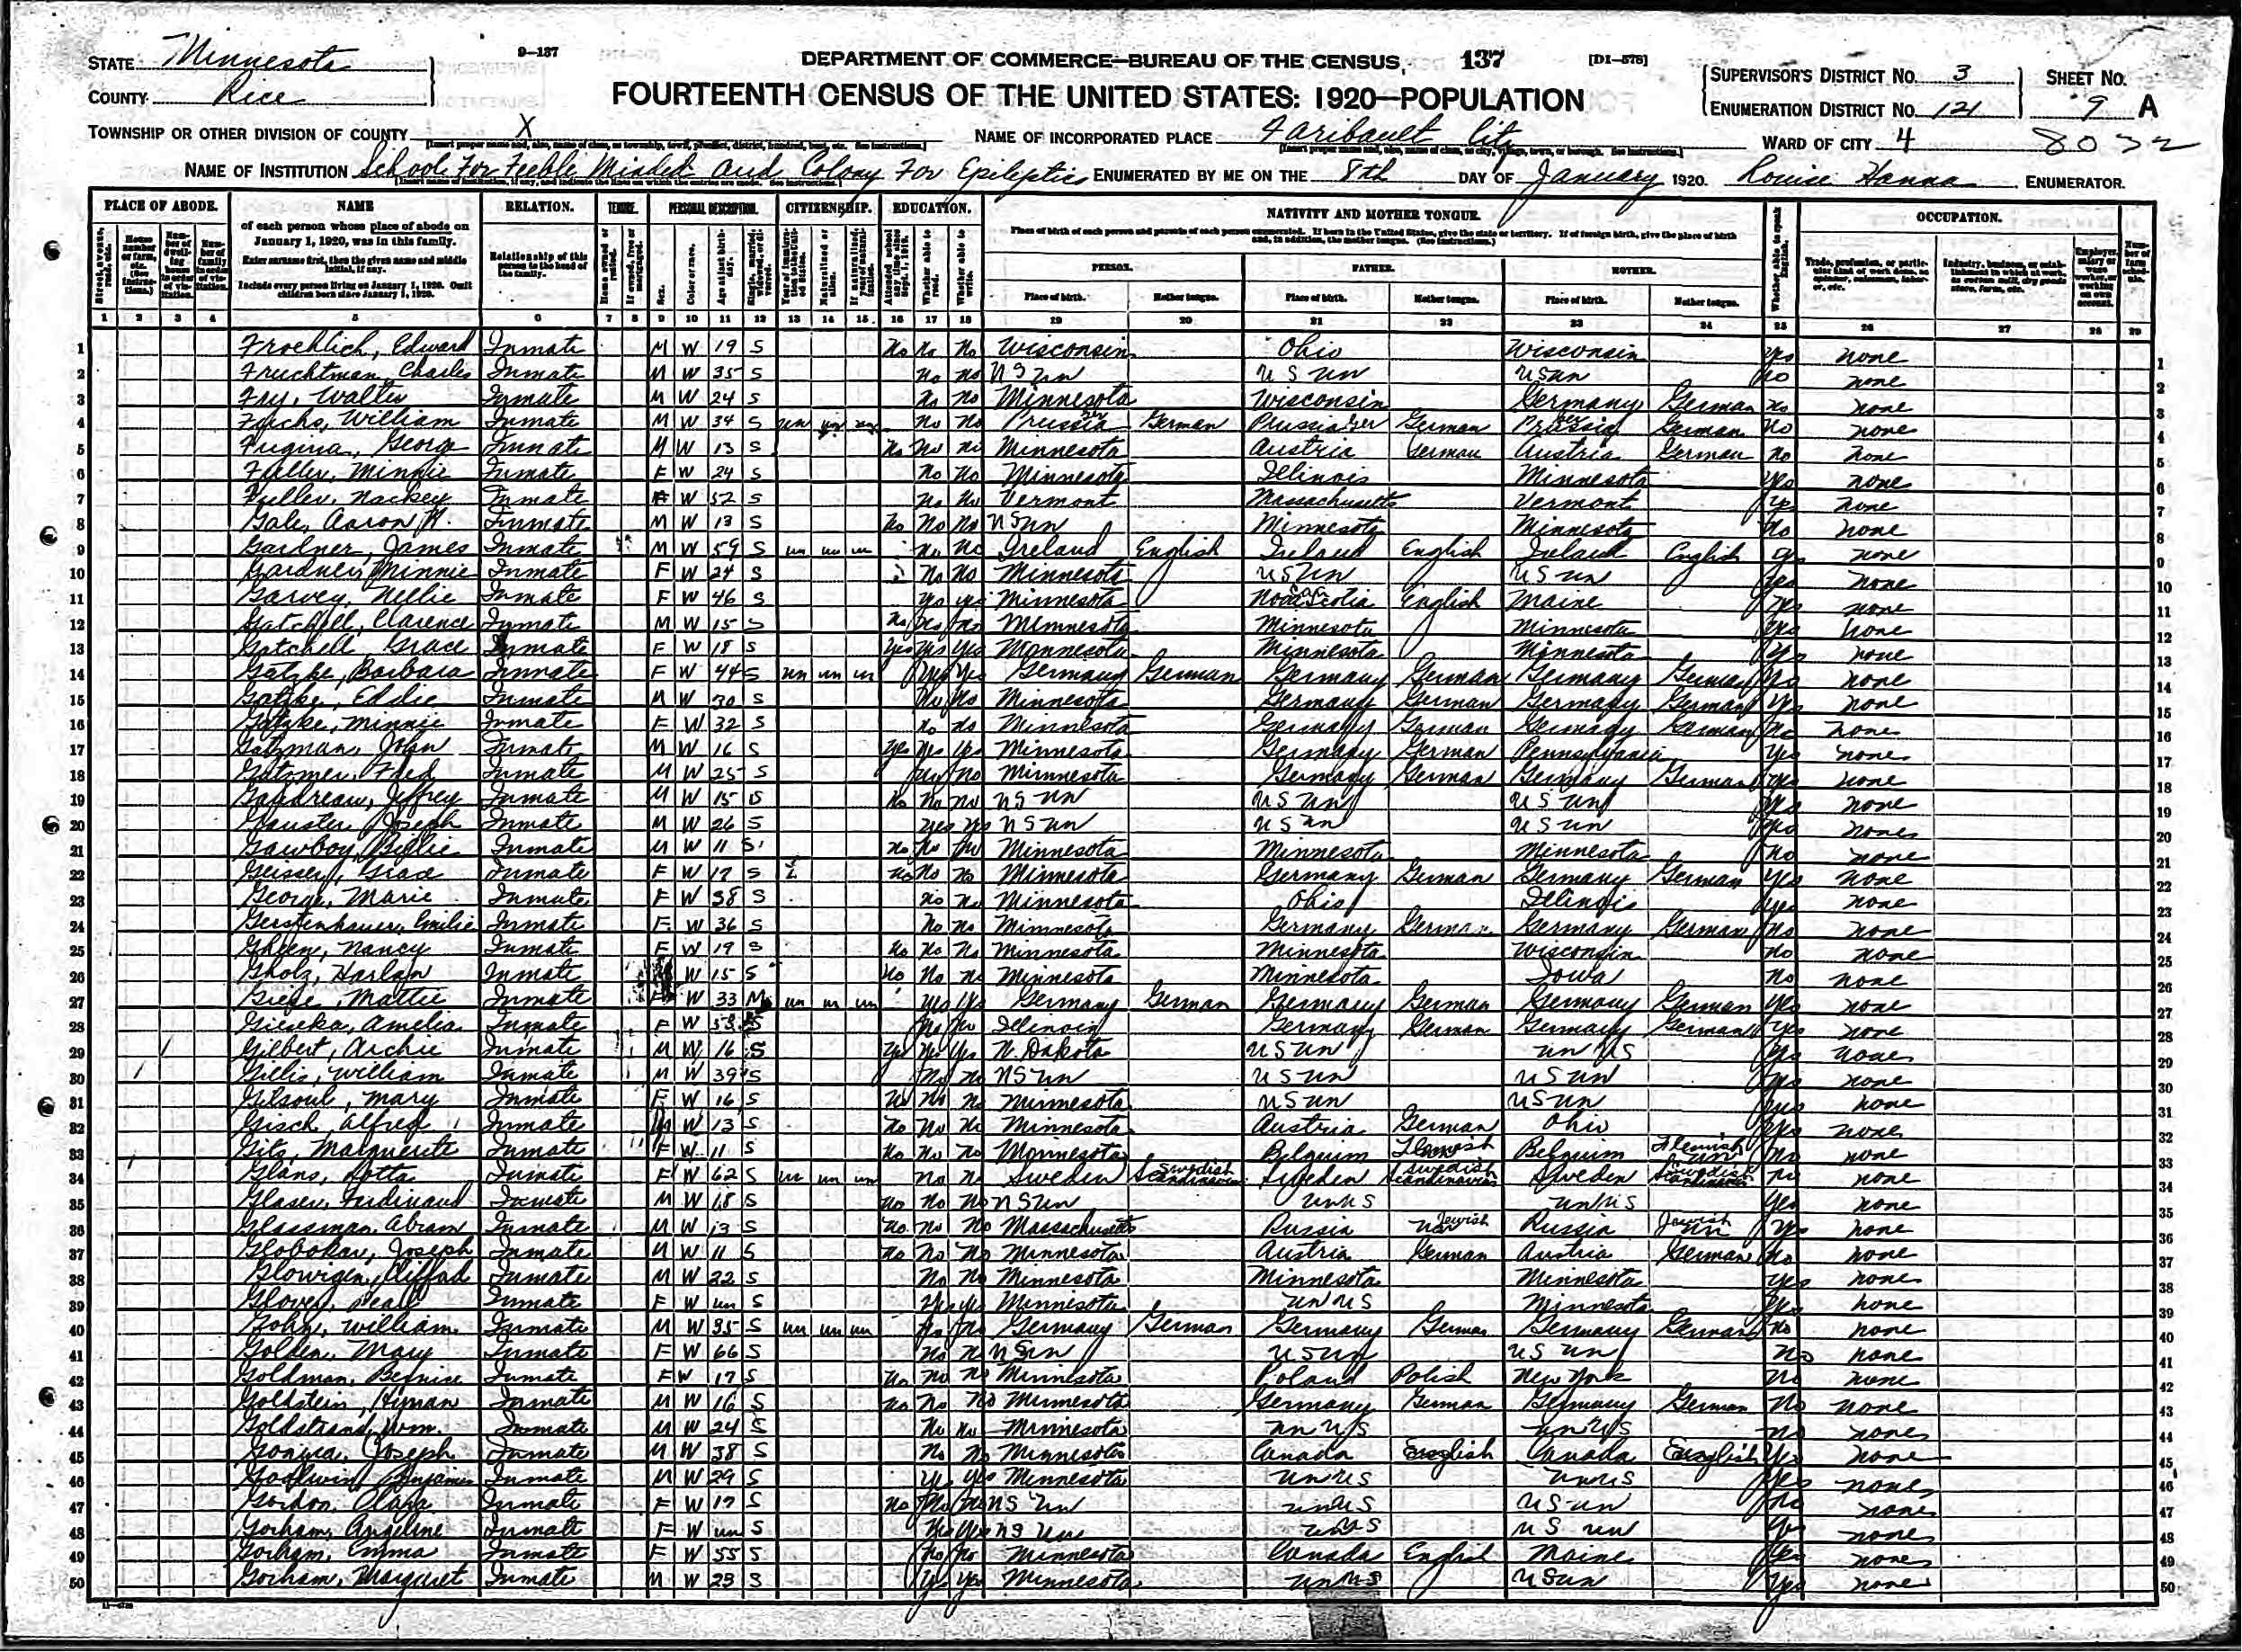 9—137
DEPARTMENT OF COMMERCE—BUREAU OF THE CENSUS
137
[D1—578]
STATE Minnesota
COUNTY Rice
FOURTEENTH CENSUS OF THE UNITED STATES: 1920—POPULATION
SUPERVISOR'S DISTRICT No. 3
ENUMERATION DISTRICT No. 121
SHEET No. 9 A
TOWNSHIP OR OTHER DIVISION OF COUNTY X
NAME OF INCORPORATED PLACE Faribault City
WARD OF CITY 4
NAME OF INSTITUTION School For Feeble Minded and Colony For Epileptics ENUMERATED BY ME ON THE 8th DAY OF January 1920. Louise Hanna ENUMERATOR.
PLACE OF ABODE. NAME RELATION. TENURE. PERSONAL DESCRIPTION. CITIZENSHIP. EDUCATION. NATIVITY AND MOTHER TONGUE. OCCUPATION.
of each person whose place of abode on January 1, 1920, was in this family.
Enter surname first, then the given name and middle initial, if any.
Include every person living on January 1, 1920. Omit children born since January 1, 1920.
Relationship of this person to the head of the family.
Place of birth of each person and parents of each person enumerated. If born in the United States, give the state or territory. If of foreign birth, give the place of birth and, in addition, the mother tongue. (See instructions.)
PERSON. FATHER. MOTHER.
Place of birth. Mother tongue. Place of birth. Mother tongue. Place of birth. Mother tongue.
1 2 3 4 5 6 7 8 9 10 11 12 13 14 15 16 17 18 19 20 21 22 23 24 25 26 27 28 29
1 Froehlich, Edward Inmate M W 19 S No No No Wisconsin Ohio Wisconsin Yes none 1
2 Fruchtman, Charles Inmate M W 35 S No No U S un U S un U S un no none 2
3 Fry, Walter Inmate M W 24 S No No Minnesota Wisconsin Germany German no none 3
4 William Inmate M W 34 S un un un No No Prussia German Prussia Ger German Prussia German No none 4
5 Fugina, George Inmate M W 13 S No No no Minnesota Austria German Austria German no none 5
6 Fuller, Minnie Inmate F W 24 S No No Minnesota Illinois Minnesota Yes none 6
7 Fuller, Nackey Inmate F W 52 S No No Vermont Massachusetts Vermont Yes none 7
8 Gale, Aaron Inmate M W 13 S No No No U S un Minnesota Minnesota No none 8
9 Gardner, James Inmate M W 59 S un un un No No Ireland English Ireland English Ireland English Yes none 9
10 Gardner, Minnie Inmate F W 24 S No No Minnesota U S un U S un Yes none 10
11 Garvey, Nellie Inmate F W 46 S Yes yes Minnesota Nova Scotia English Maine Yes none 11
12 Gatchell, Clarence Inmate M W 15 S No Yes No Minnesota Minnesota Minnesota Yes none 12
13 Gatchell, Grace Inmate F W 18 S Yes Yes Yes Minnesota Minnesota Minnesota Yes none 13
14 Gatzke, Barbara Inmate F W 44 S un un un Yes Yes Germany German Germany German Germany German No none 14
15 Gatzke, Eddie Inmate M W 30 S No No Minnesota Germany German Germany German Yes none 15
16 Gatzke, Minnie Inmate F W 32 S No No Minnesota Germany German Germany German No none 16
17 Gatzman, John Inmate M W 16 S Yes Yes Yes Minnesota Germany German Pennsylvania Yes none 17
18 Fred Inmate M W 25 S No Minnesota Germany German Germany German Yes none 18
19 Gaudreau, Jeffrey Inmate M W 15 S No No No U S un U S un U S un none 19
20 Gauster, Joseph Inmate M W 26 S Yes Yes U S un U S un U S un Yes none 20
21 Gawboy, Billie Inmate M W 11 S No No No Minnesota Minnesota Minnesota No none 21
22 Grace Inmate F W 17 S No No No Minnesota Germany German Germany German Yes none 22
23 George, Marie Inmate F W 38 S No No Minnesota Ohio Illinois Yes none 23
24 Gerstenhauer, Emilie Inmate F W 36 S No No Minnesota Germany German Germany German No none 24
25 Gheen, Nancy Inmate F W 19 S No No No Minnesota Minnesota Wisconsin No none 25
26 Gholz, Harlan Inmate W 15 S No No No Minnesota Minnesota Iowa No none 26
27 Giese, Mattie Inmate F W 33 M un un un Yes Yes Germany German Germany German Germany German Yes none 27
28 Gieseka, Amelia Inmate F W 53 S No No Illinois Germany German Germany German Yes none 28
29 Gilbert, Archie Inmate M W 16 S Yes Yes Yes N. Dakota U S un un U S Yes none 29
30 Gillis, William Inmate M W 39 S No No U S un U S un U S un none 30
31 Gilsoul, Mary Inmate F W 16 S No No No Minnesota U S un U S un Yes none 31
32 Gisch, Alfred Inmate M W 13 S No No No Minnesota Austria German Ohio Yes none 32
33 Gits, Marguerite Inmate F W 11 S No No No Minnesota Belguim Flemish Belguim Flemish No none 33
34 Glans, Lotta Inmate F W 62 S un un un No No Sweden Swedish Scandinavian Sweden Swedish Scandinavian Sweden Swedish Scandinavian no none 34
35 Glaser, Ferdinand Inmate M W 18 S No No No U S un un U S un U S Yes none 35
36 Glassman, Abram Inmate M W 13 S No No No Massachusetts Russia Jewish Russia Jewish Yes none 36
37 Globokar, Joseph Inmate M W 11 S No No No Minnesota Austria German Austria German No none 37
38 Inmate M W 22 S No No Minnesota Minnesota Minnesota Yes none 38
39 Glover, Pearl Inmate F W un S Yes Yes Minnesota un U S Minnesota Yes none 39
40 Gohn, William Inmate M W 35 S un un un No No Germany German Germany German Germany German No none 40
41 Golden, Mary Inmate F W 66 S No No U S un U S un U S un No none 41
42 Goldman, Bernice Inmate F W 17 S No No No Minnesota Poland Polish New York No none 42
43 Goldstein, Hyman Inmate M W 16 S No No No Minnesota Germany German Germany German No none 43
44 Goldstrand, Wm. Inmate M W 24 S No No Minnesota un U S un U S no none 44
45 Joseph Inmate M W 38 S No No Minnesota Canada English Canada English Yes none 45
46 Goodwin, Benjamin Inmate M W 29 S Yes Yes Minnesota un U S un U S Yes none 46
47 Gordon, Clara Inmate F W 17 S No No No U S un un U S U S un No none 47
48 Gorham, Angeline Inmate F W un S Yes U S un un U S U S un Yes none 48
49 Gorham, Emma Inmate F W 55 S No No Minnesota Canada English Maine Yes none 49
50 Gorham, Margaret Inmate M W 23 S Yes Yes Minnesota un U S U S un Yes none 50